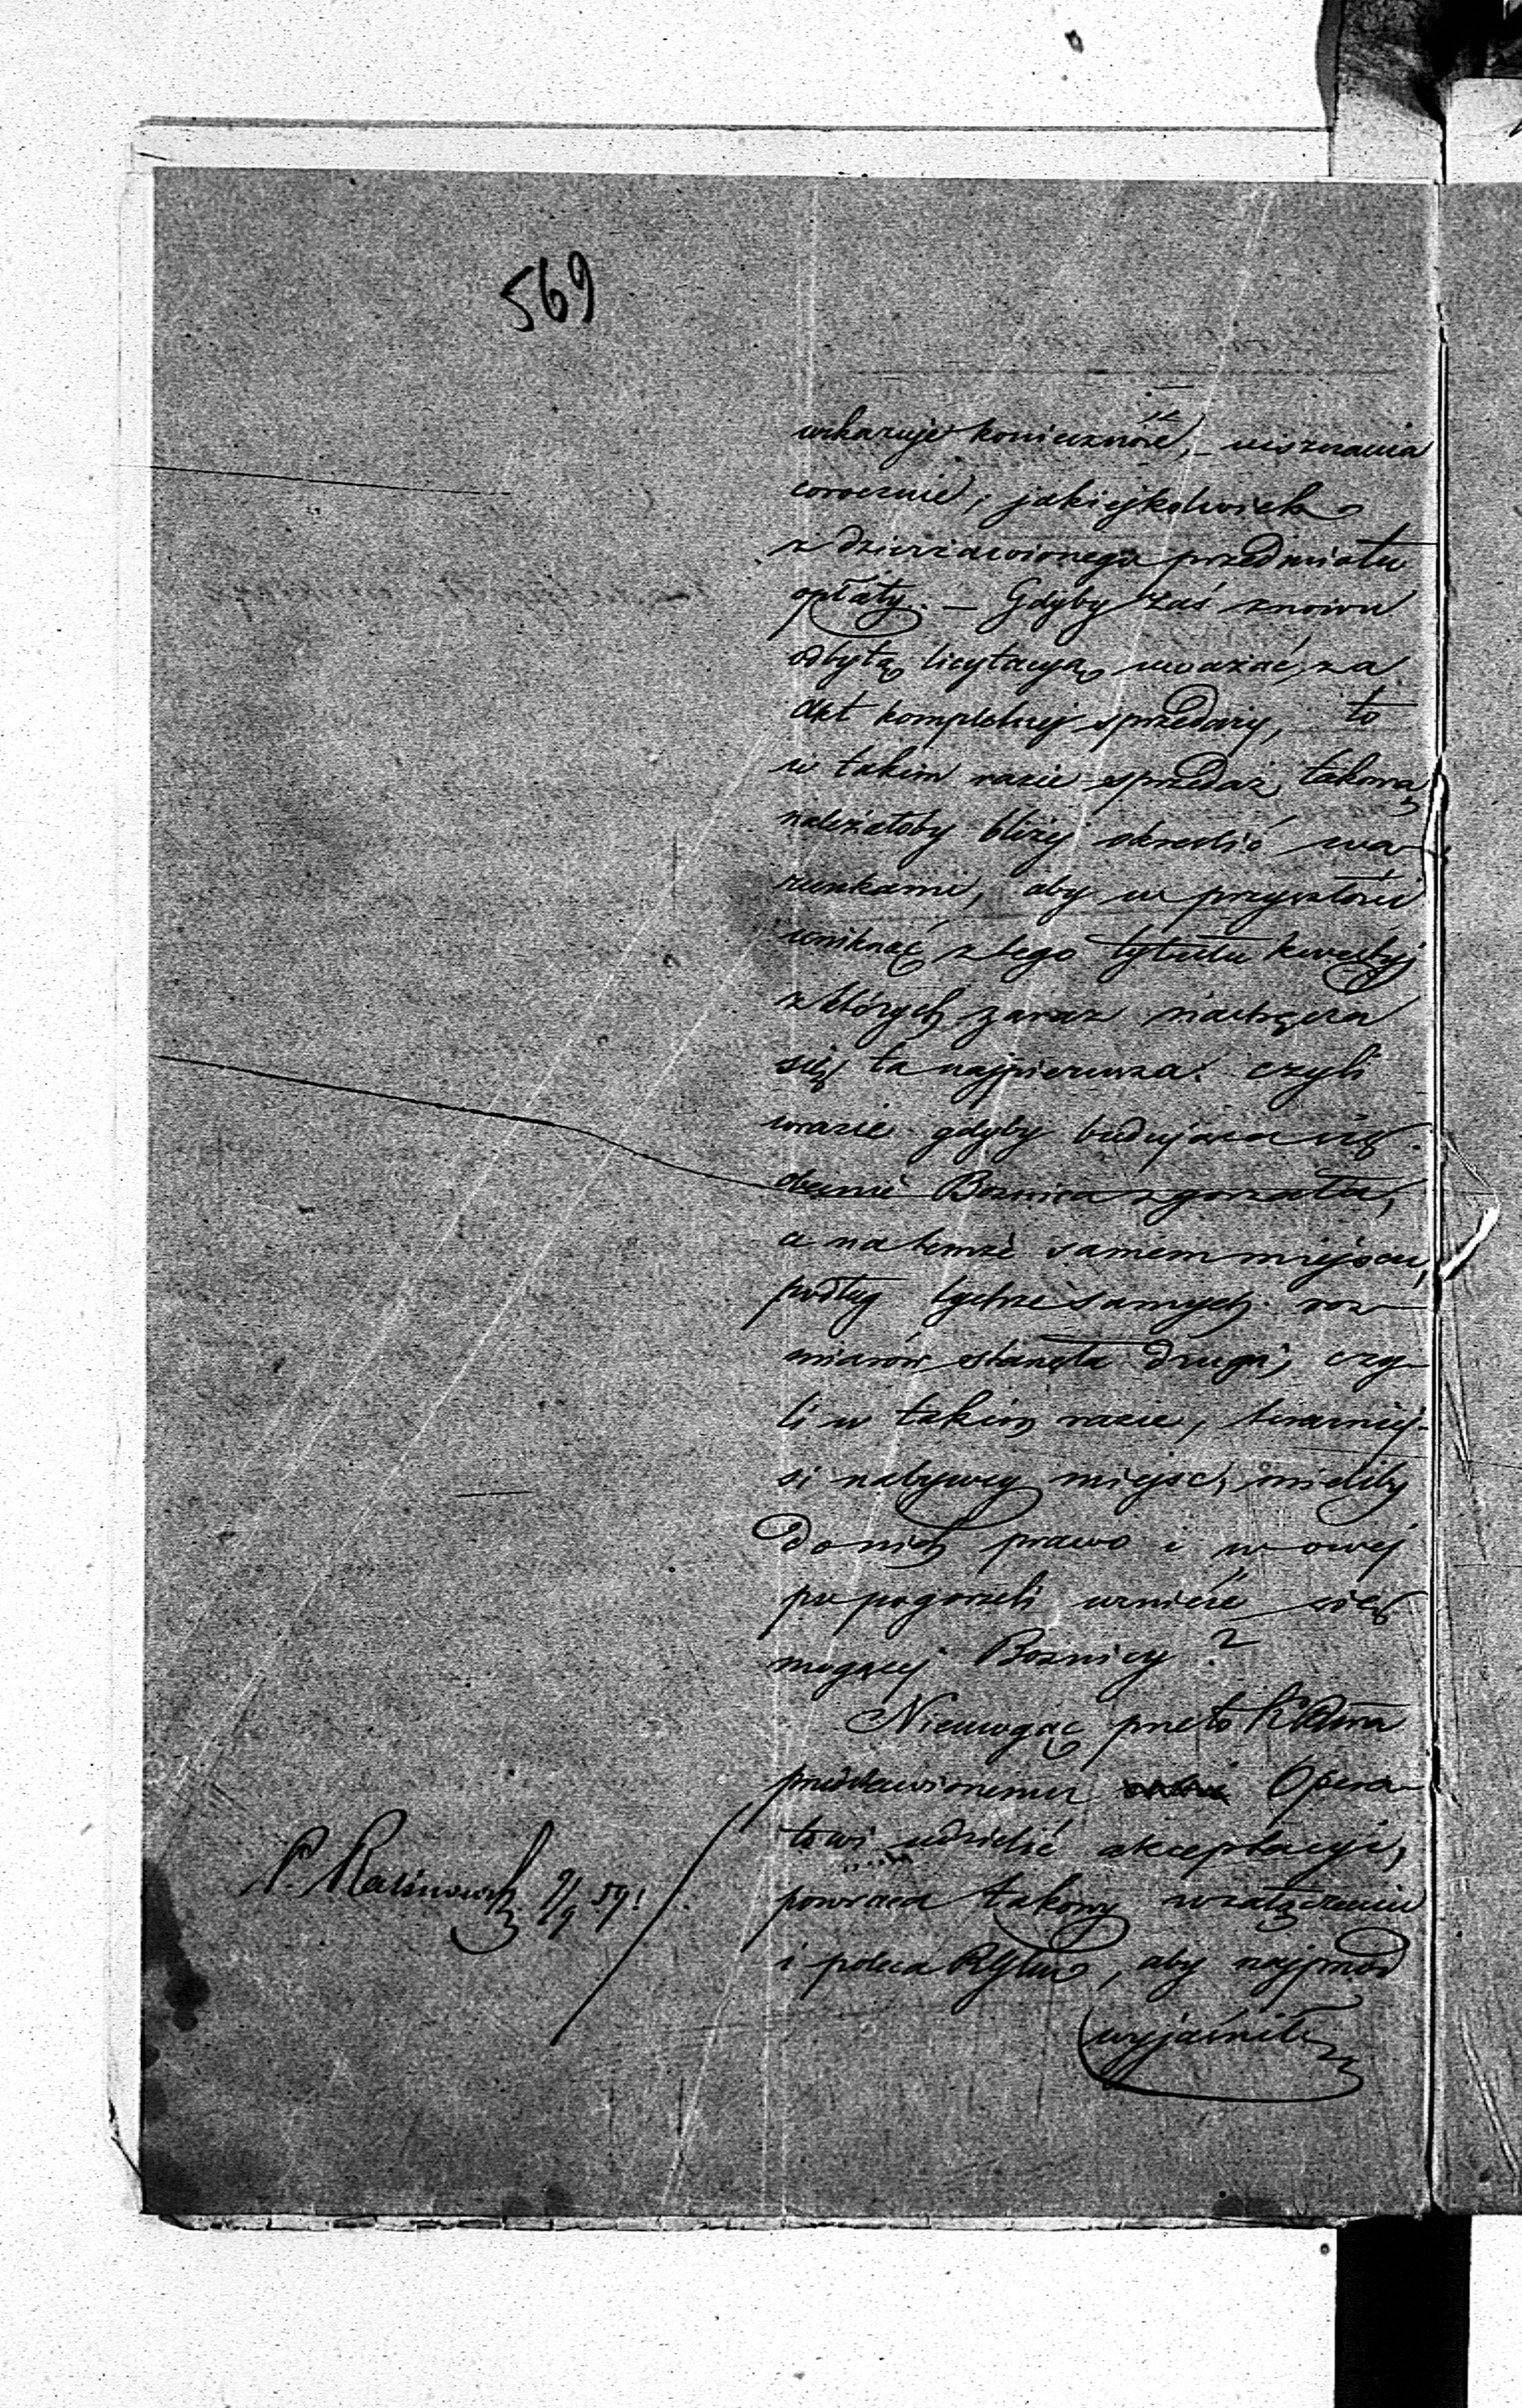 569
wskazuje konieczność, uiszczania
corocznie, jakiejkolwiek
z dzierżawionego przedmiotu
opłaty. — Gdyby zaś znowu
odbytą licytacyą uważać za
akt kompletnej sprzedaży, to
w takim razie sprzedaż takową
należałoby bliżej określić wa-
runkami, aby w przyszłości
uniknąć z tego tytułu kwestyj
z których zaraz nastręcza
się ta najpierwsza: czyli
wrazie gdyby budująca się
obecnie Boznica zgorzała,
a na temże samem miejscu,
podług tychże samych roz-
miarów stanęła druga, czy-
li w takim razie, teraźniej-
si nabywcy miejsc, mieliby
do nich prawo i w owej
po pogorzeli wznieść się
mogącej Boznicy?
Niemogąc przeto
przedstawionemu Opera-
towi udzielić akceptacyi,
powraca takowy w załączeniu
i poleca, aby najprzod
wyjaśnił
P. Kalinowski 9/9 59!